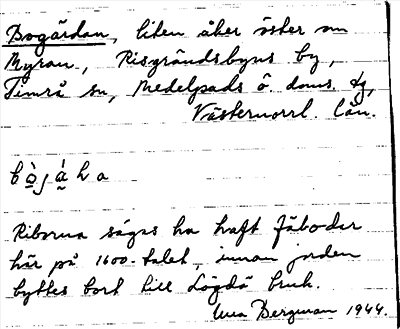 Bogårdan, liten åker öster om
Myran, Risgrändsbyns by,
Timrå sn, Medelpads ö. doms. tg,
Västernorrl. län.
bo̱ja̰ha
Riborna säges ha haft fäbodar
här på 1600-talet, innan jorden
byttes bort till Lögdö bruk.
Bergman 1944.